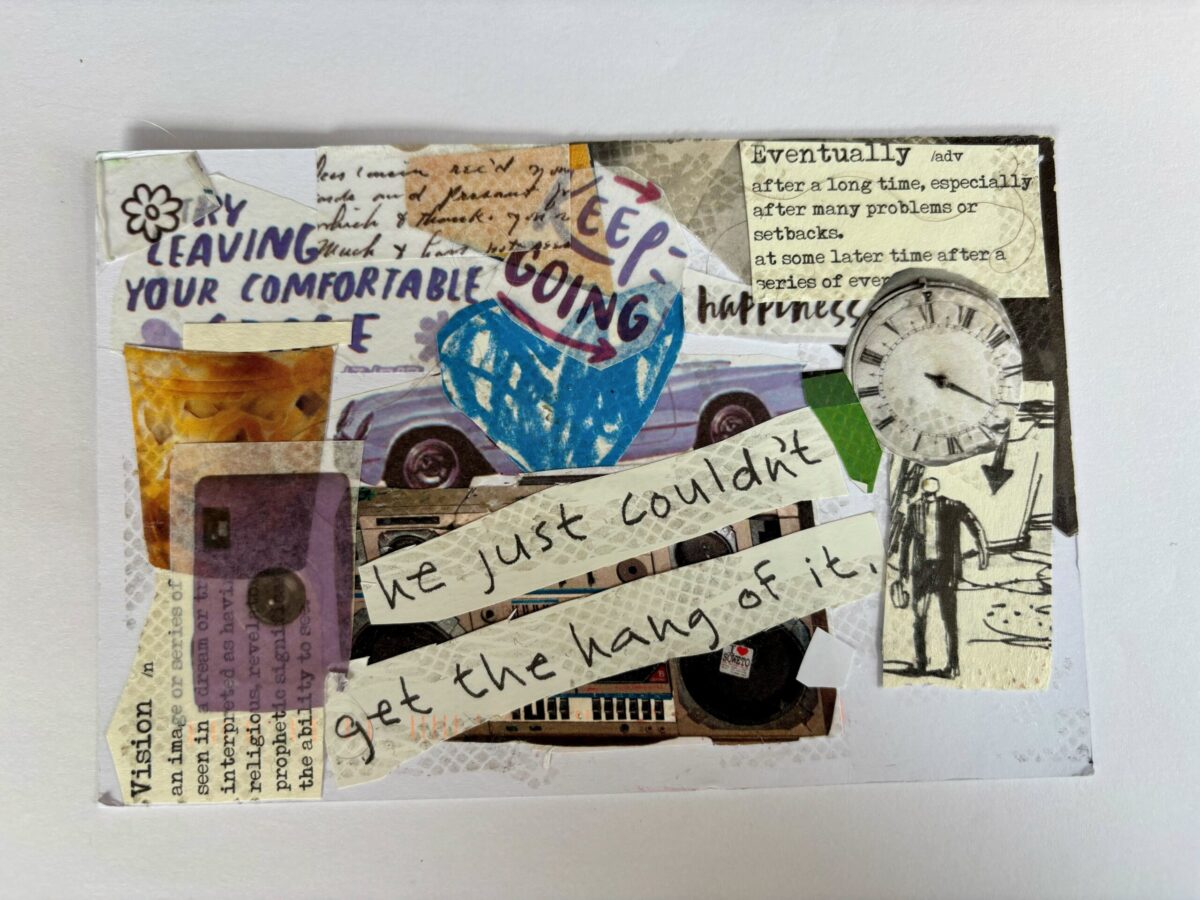 TRY
LEAVING
YOUR COMFORTABLE
rec'd you
and present
which & thank. you
Much &
KEEP
GOING
happiness
Eventually /adv
after a long time, especially
after many problems or
setbacks.
at some later time after a
series of
he just couldn't
get the hang of it.
I ♥
SOWETO
Vision /n
an image or series of
seen in a dream or
interpreted as
religious,
prophetic
the ability to